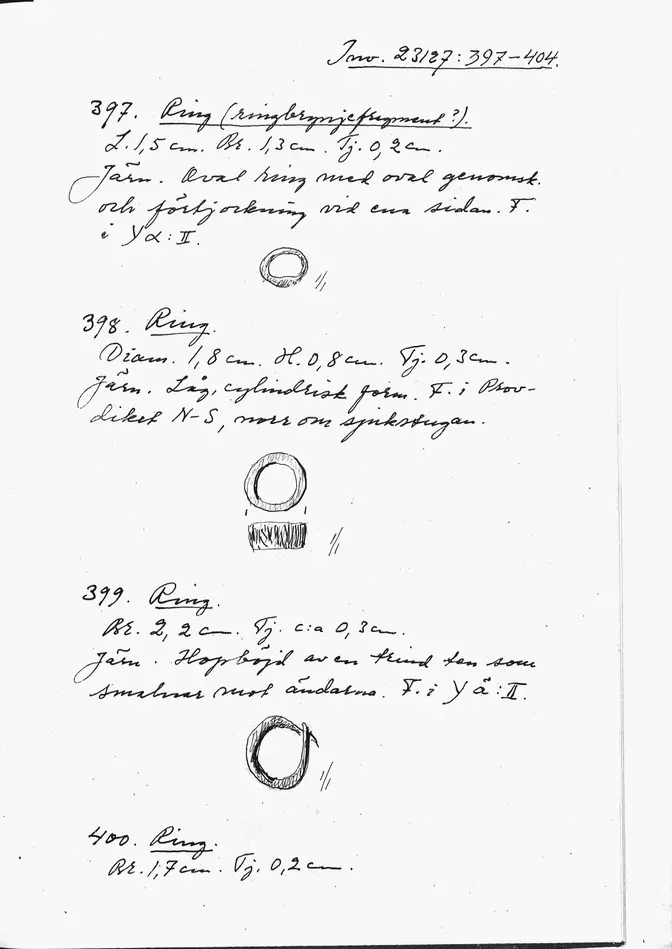 Inv. 23127:397-404.
397. Ring (ringbrynjefragment?).
L. 1,5 cm. Br. 1,3 cm. Tj. 0,2 cm.
Järn. Oval ring med oval genomsk.
och förtjockning vid ena sidan. F.
i Yα:II.
1/1
398. Ring.
Diam. 1,8 cm. H. 0,8 cm. Tj. 0,3 cm.
Järn. Låg, cylindrisk form. F. i Prov-
diket N-S, norr om sjukstugan.
1/1
399. Ring.
Br. 2,2 cm. Tj. c:a 0,3 cm.
Järn. Hopböjd av en trind ten som
smalnar mot ändarna. F. i Y å:II.
1/1
400. Ring.
Br. 1,7 cm. Tj. 0,2 cm.